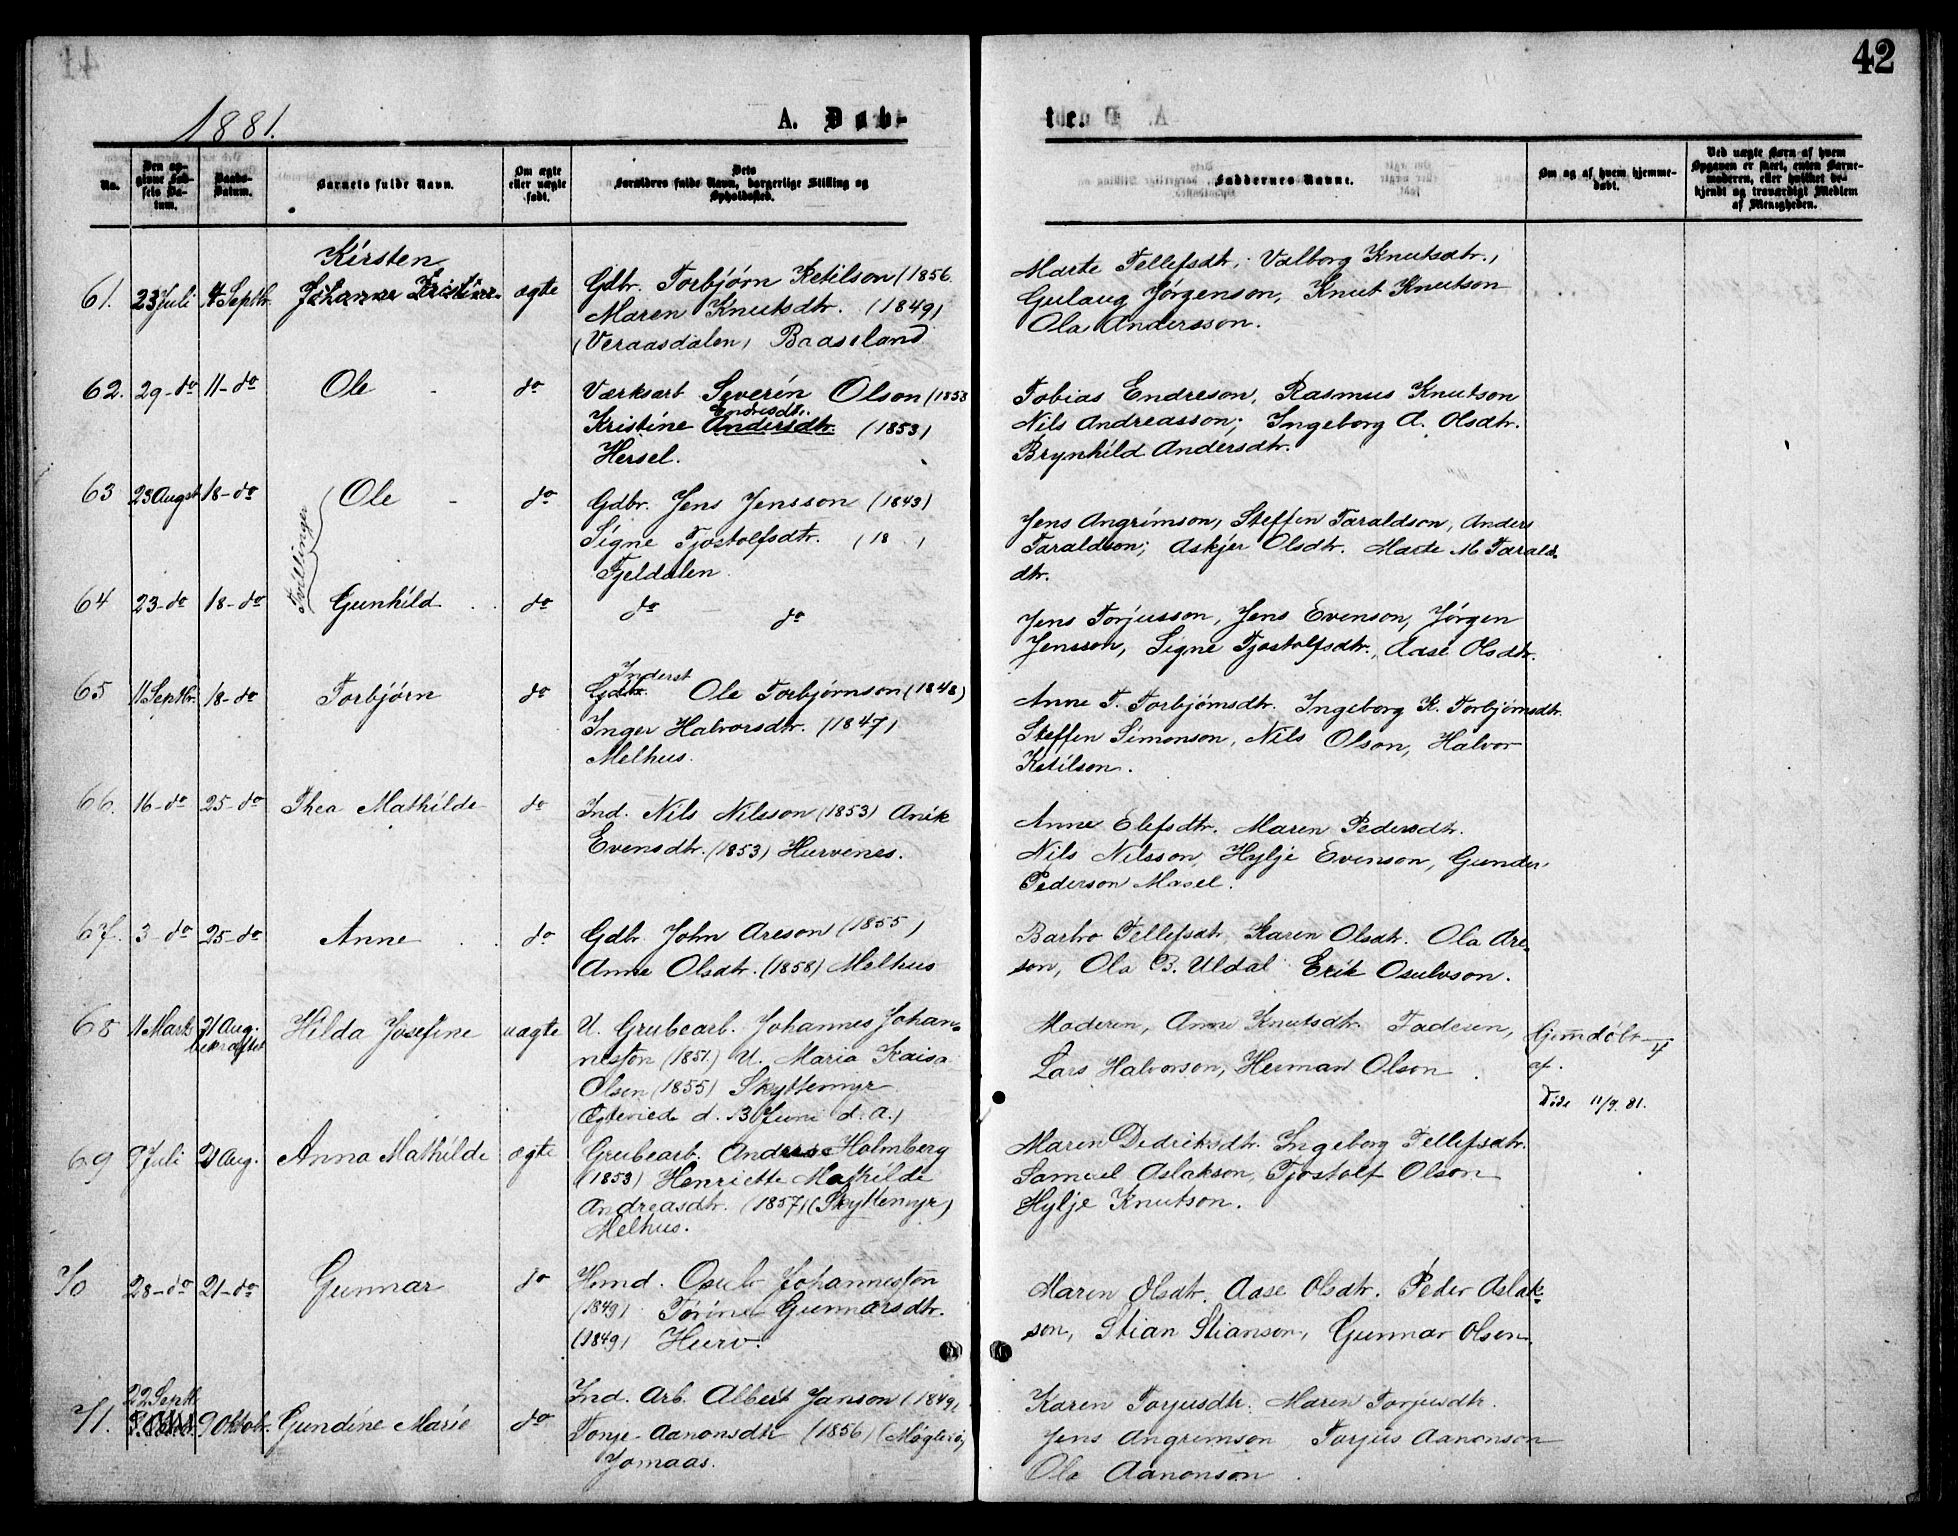 42
1881.
A. Døb-
te.
No.
Den opgivne Fødsels Datum.
Daabs-Datum.
Barnets fulde Navn.
Om ægte eller uægte født.
Dets Forældres fulde Navn, borgerlige Stilling og Opholdssted.
Faddernes Navne.
Om og af hvem hjemmedøbt.
Ved uægte Børn af hvem Opgaven er skeet, enten Barnemoderen, eller hvilket bekjendt og troværdigt Medlem af Menigheden.
Kirsten
61. 23 Juli 4 Septbr. Johanne Kristine ægte Gdbr. Torbjørn Ketilson (1856
Maren Knutsdtr. (1849)
(Veraasdalen) Baaseland
Marte Tellefsdtr; Valborg Knutsdtr.,
Gulaug Jørgenson, Knut Knutson
Ola Andersson.
62. 29-do 11-do Ole do Værksarb Severin Olson (1858
Endresdtr.
Kristine Andersdtr. (1853)
Hersel.
Tobias Endreson, Rasmus Knutson
Nils Andreasson; Ingeborg A. Olsdtr.
Brynhild Andersdtr.
63 23 Augst 18-do Ole do Gdbr. Jens Jensson (1843)
Signe Tjostolfsdtr. (18 )
Fjeldalen
Tvillinger
Jens Angrimson, Steffen Taraldson, Anders
Taraldson; Askjer Olsdtr. Marte M Taralds
dtr.
64 23-do 18-do Gunhild do do do
Jens Torjusson, Jens Evenson, Jørgen
Jensson, Signe Tjostolfsdtr., Aase Olsdtr.
Inderst
65 11 Septbr. 18-do Torbjørn do Gdbr. Ole Torbjørnson (1848)
Inger Halvorsdtr. (1847)
Melhus.
Anne T. Torbjørnsdtr. Ingeborg K. Torbjørnsdtr.
Steffen Simonson, Nils Olson, Halvor
Ketilson.
66. 16-do 25-do Thea Mathilde do Ind. Nils Nilsson (1853) Anik
Evensdtr. (1853) Hurvenes.
Anne Elefsdtr. Maren Pedersdtr.
Nils Nilsson, Hylje Evenson, Gunder
Pederson Masel.
67. 3-do 25-do Anne do Gdbr. John Areson (1855)
Anne Olsdtr. (1858) Melhus
Barbro Tellefsdtr. Karen Olsdtr. Ola Are-
son, Ola B. Uldal Erik Osulvson.
68 11 Marts 21 Aug. bekræftet Hilda Josefine uægte U. Grubearb. Johannes Johan-
nesson (1851.) U. Maria Kaisa
Olsen (1855) Skyttemyr
(Ægteviede d. 13 Juni d. a.)
Moderen, Anne Knutsdtr. Faderen,
Lars Halvorson, Herman Olson
Hjemdøbt
af.
Døde 11/9. 81.
69 9 Juli 21 Aug. Anna Mathilde ægte Grubearb. Anders Holmberg
(1853) Henriette Mathilde
Andreasdtr. (1857) (Skyttemyr)
Melhus.
Maren Didriksdtr. Ingeborg Tellefsdtr.
Samuel Aslakson, Tjostolf Olson
Hylje Knutson.
70 28-do 21-do Gunnar do Hmd. Osulv Johannesson
(1849) Torine Gunnarsdtr.
(1849) Hurv.
Maren Olsdtr. Aase Olsdtr. Peder Aslak-
son, Stian Stianson, Gunnar Olsen.
22 Septb.
71. 9 Oktobr. Gundine Marie do Ind. Arb. Albert Janson (1849)
Tonje Aanonsdtr (1856)
Jomaas.
Karen Torjusdtr. Maren Torjusdtr.
Jens Angrimson Torjus Aanonson
Ola Aanonson